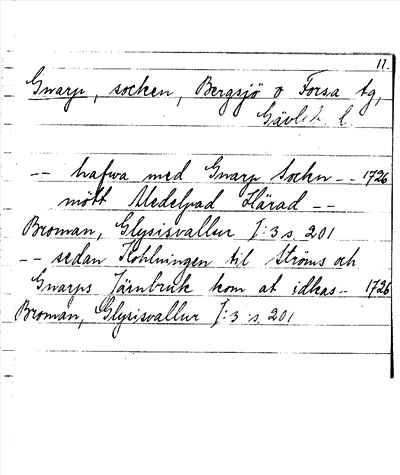 11.
Gnarp, socken, Bergsjö o Forsa tg,
Gävleb. l.
-- hafwa med Gnarp Sockn -- 1726
mött Medelpad Härad --
Broman, Glysisvallur I:3 s. 201
-- sedan Kohlningen til Ströms och
Gnarps Järnbruk kom at idkas -- 1726
Broman, Glysisvallur I:3 s. 201